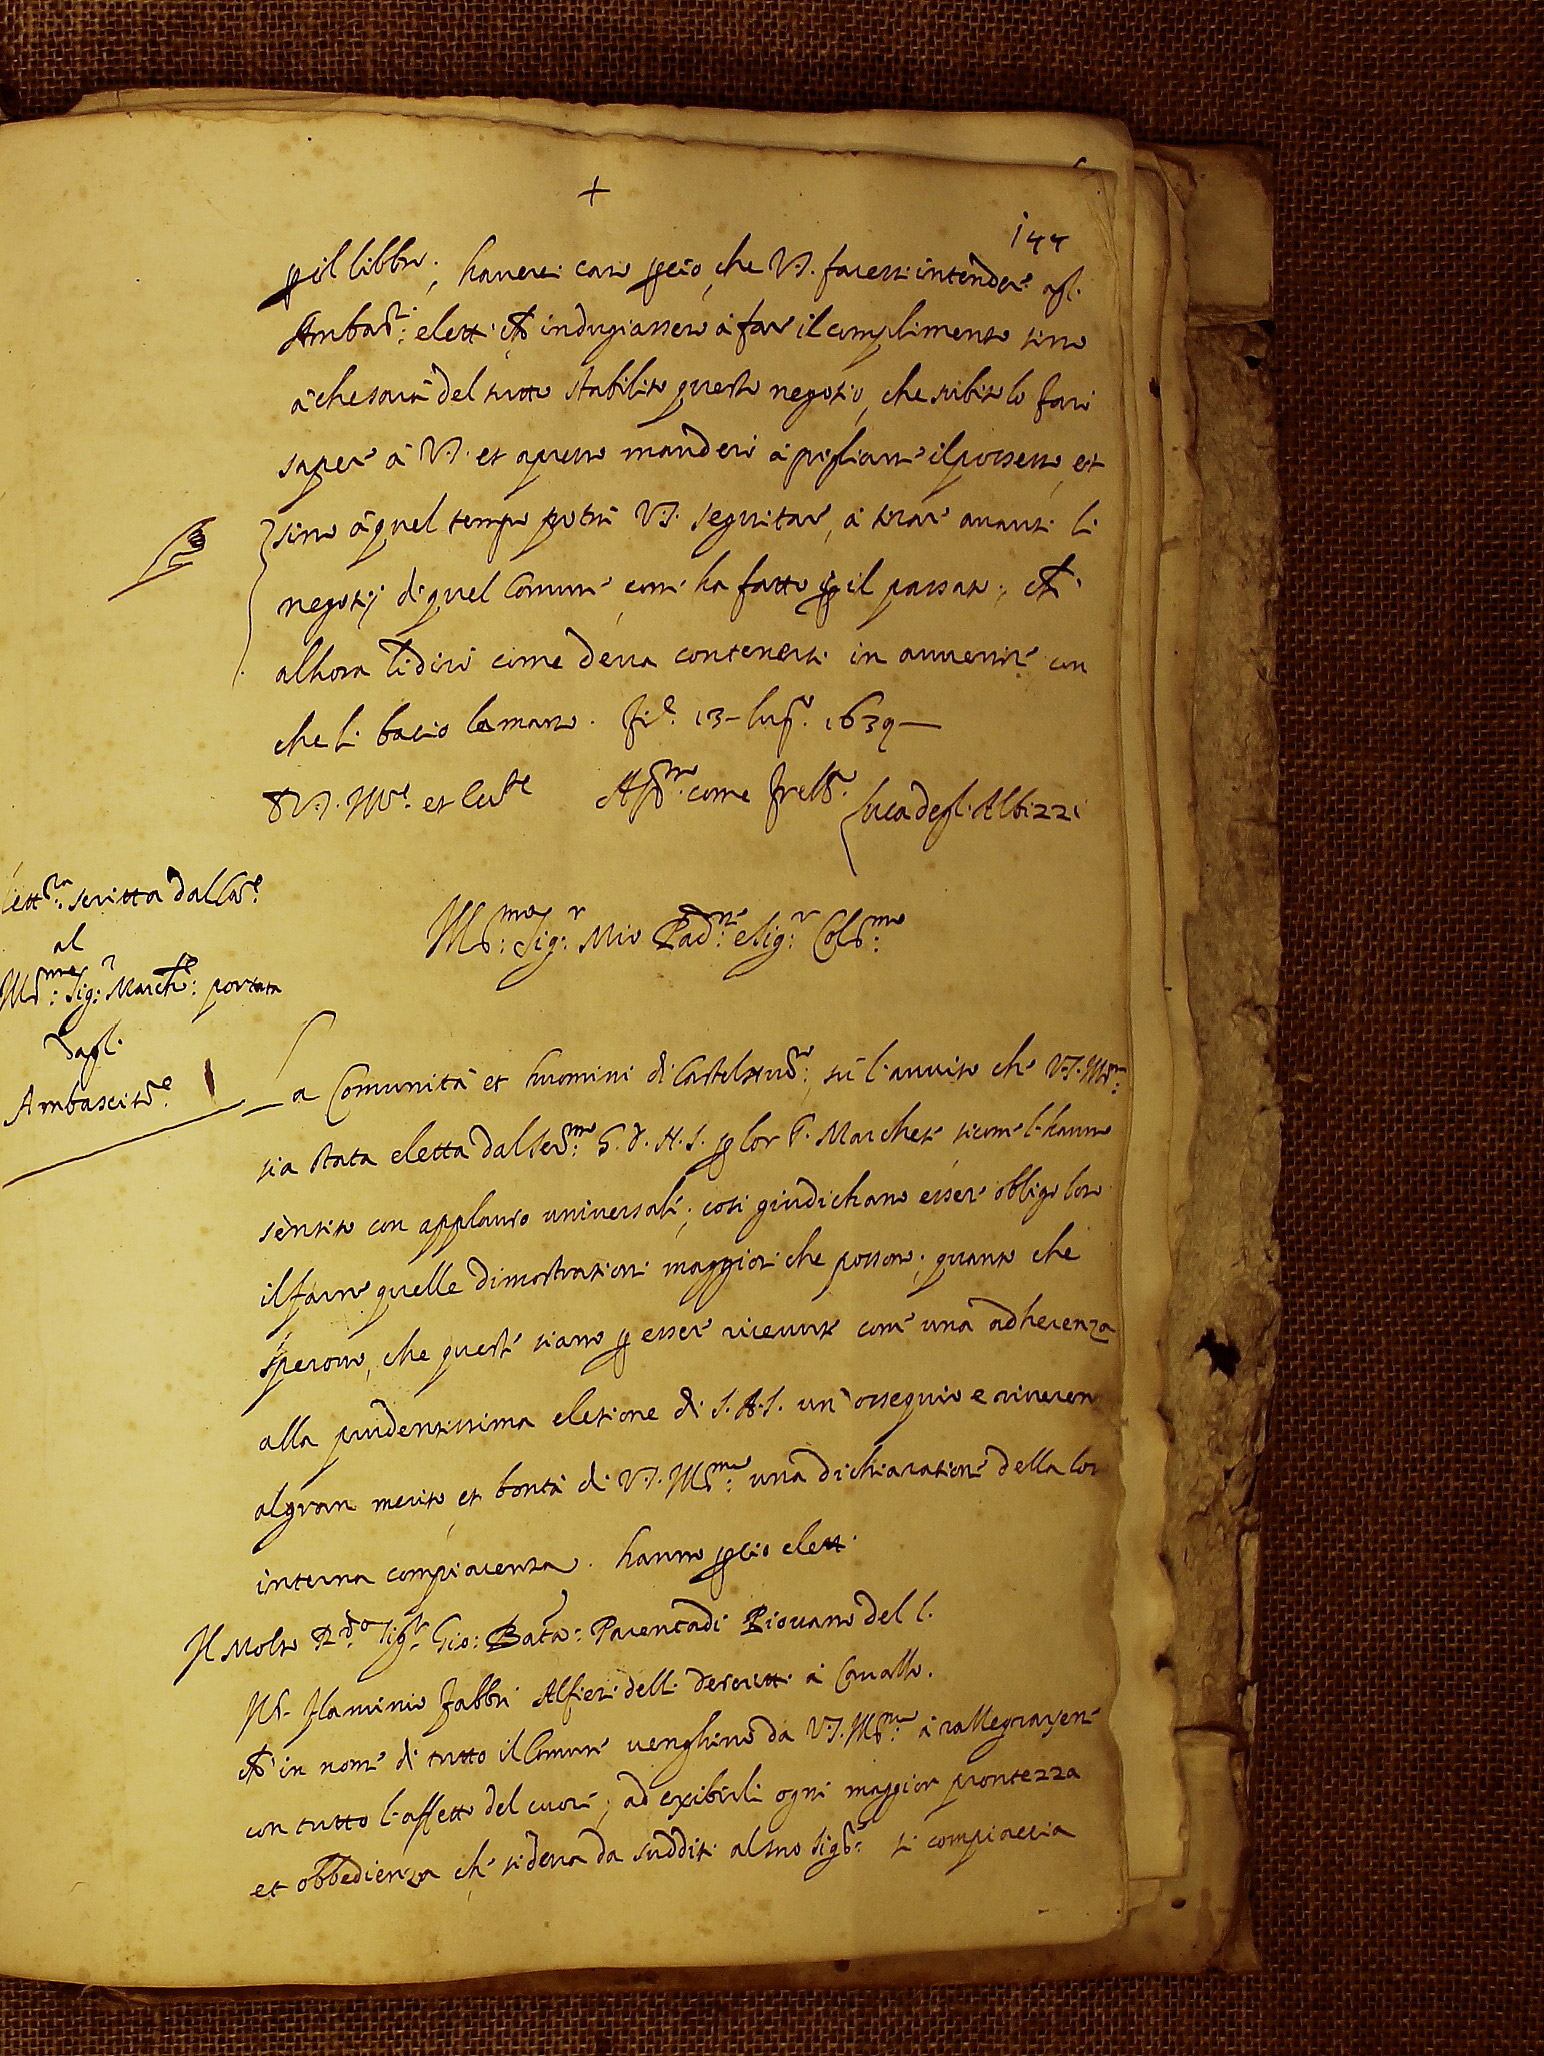 +
144
p il libbro; haverei caro p ciò, che V.S. facessi intendere agl'
Ambasri: eletti ch' indugiassero à far il complimento sino
à che sarà del tutto stabilito questo negotio, che subito lo farò
sapere à V.S. et apresso manderò à pigliarne il possesso, et
sino à quel tempo potrà V.S. seguitare, à tirar avanti li
negotij di quel Comune come ha fatto p il passato; ch'
alhora li dirò come deva contenersi in avvenire con
che li bacio le mano. Fire. 13 - lugo. 1639 -
D V.S. Mre. et
Affmo. come frello.
Luca degl'Albizzi
Lettra: scritta dal Coe.
al
Illmo: Sigr: Marche: portata
dagl'
Ambascitoe.
Illmo: Sigr: Mio Padne: e Sigr: Colmo:
La Comunità et huomini di Castelnuo: sù l'avviso che V.S. Illma:
sia stata eletta dal Sermo: G. D. N. S. p lor P. Marchese sicome l'hanno
sentito con applauso universale; così giudichano essere obligo loro
il farne quelle dimostrationi maggiori che possono; quanto che
sperono, che queste siano p essere ricevute come una adherenza
alla prudentissima eletione di S.A.S. un ossequio e riveren
al gran merito et bontà di V.S. Illma: una dichiaratione della lor
interna compiacenza. hanno p ciò eletti
Il Molto Rdo. Sigr. Gio: Batta: Parentadi Piovano del l.
Flaminio Fabbri Alfieri delli descritti à Cavallo.
Ch' in nome di tutto il Comune venghino da V.S. Illma: à rallegrarsene
con tutto l'affetto del cuore; ad exibirli ogni maggior prontezza
et obbedienza che si deva da sudditi al suo Sigre: si compiaccia